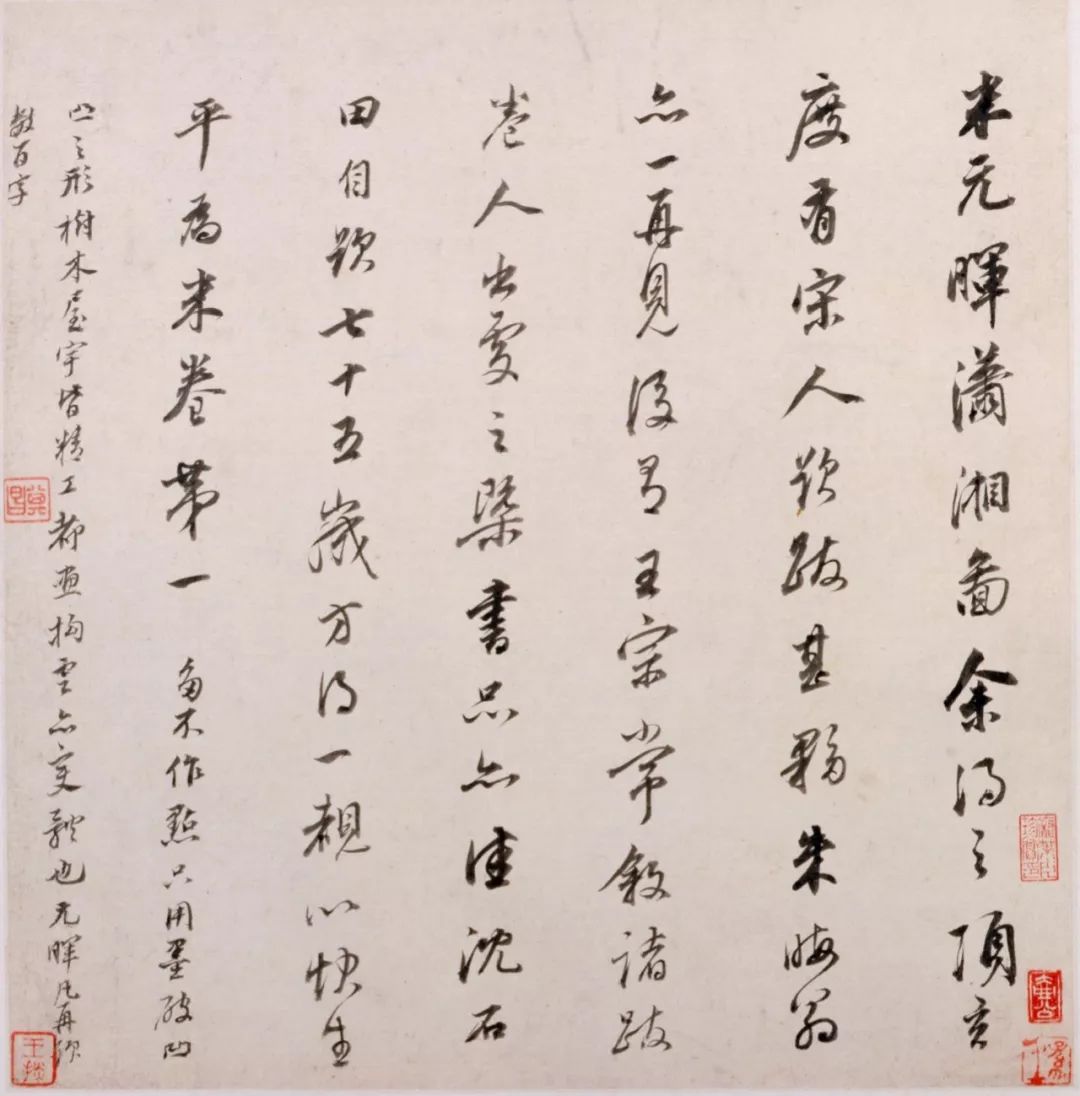 米元暉瀟湘圖余得之項玄
度有宋人題跋甚夥朱晦翁
亦一再見後有王宗常敘諸跋
卷人出處之槩書品亦佳沈石
田自題七十五歲方得一覩以快生
平為米卷第一 不作點只用墨破凹
凸之形樹木屋宇皆精工都畫雲亦變體也元暉凡再題
數百字